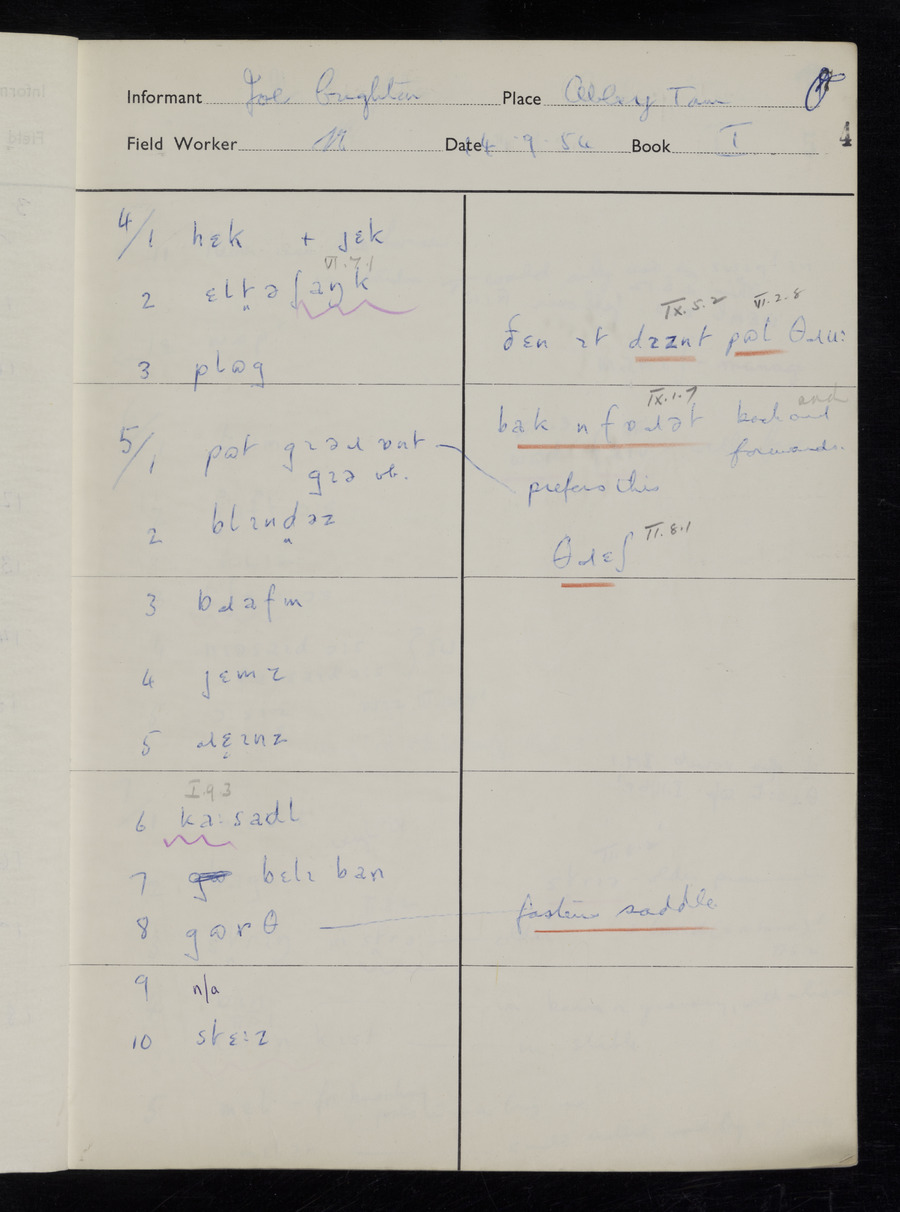 Informant Joe Creighton Place Abbey Town
4
Field Worker Date 14 · 9 · 54 Book I
4/1 hɛk + jɛk
VI.7.1
2 ɛltəʃaŋk
IX.5.2 VI.2.8
ðɛn ɪt dɪznt pʊl θɹu:
3 plʊg
IX.1.7 and
bak n fɒɹət back and
forwards.
5/1 pʊt gɪəɹ ɒnt
gɪə vb.
prefers this
2 blɪndəz
θɹɛʃ II.8.1
3 bɹafm
4 jɛmz
5 ɹɛɪnz
I.9.3
6 ka:sadl
7 bɛlɪ ban
8 gʊrθ fastens saddle
9 n/a
10 stɛ:z